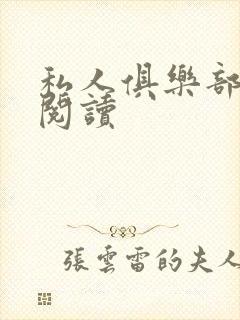 私人俱樂部
閱讀
張雲雷的夫人